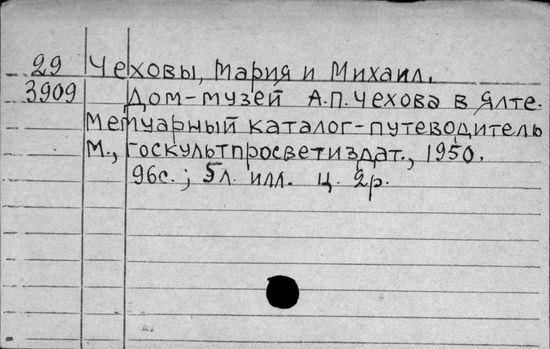 29 Чеховы, Мария и Михаил.
3909 Дом-музей А.П. Чехова в Ялте.
Мемуарный каталог-путеводитель
М., Госкультпросветиздат., 1950.
96с.; 5л. илл. ц. 2р.